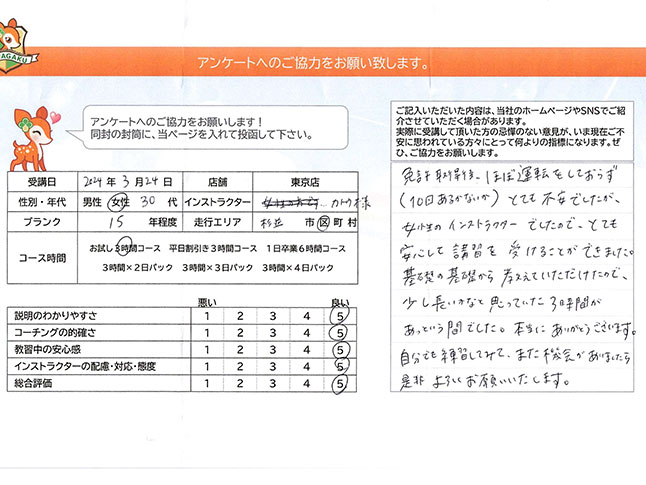 AGAKU
アンケートへのご協力をお願い致します。
アンケートへのご協力をお願いします!
同封の封筒に、当ページを入れて投函して下さい。
受講日 2024年 3月 24日 店舗 東京店
性別・年代 男性 女性 30代 インストラクター カトウ様
ブランク 15 年程度 走行エリア 杉並 市 区 町 村
コース時間 お試し3時間コース 平日割引き3時間コース 1日卒業6時間コース
3時間×2日パック 3時間×3日パック 3時間×4日パック
悪い 良い
説明のわかりやすさ 1 2 3 4 5
コーチングの的確さ 1 2 3 4 5
教習中の安心感 1 2 3 4 5
インストラクターの配慮・対応・態度 1 2 3 4 5
総合評価 1 2 3 4 5
ご記入いただいた内容は、当社のホームページやSNSでご紹
介させていただく場合があります。
実際に受講して頂いた方の忌憚のない意見が、いま現在ご不
安に思われている方々にとって何よりの指標になります。ぜ
ひ、ご協力をお願いします。
免許取得後、ほぼ運転をしておらず
(10回あるかないか)とても不安でしたが、
女性のインストラクターでしたので、とても
安心して講習を受けることができました。
基礎の基礎から教えていただけたので、
少し長いかなと思っていた3時間が
あっという間でした。本当にありがとうございます。
自分でも練習してみて、また機会がありましたら
是非よろしくお願いいたします。